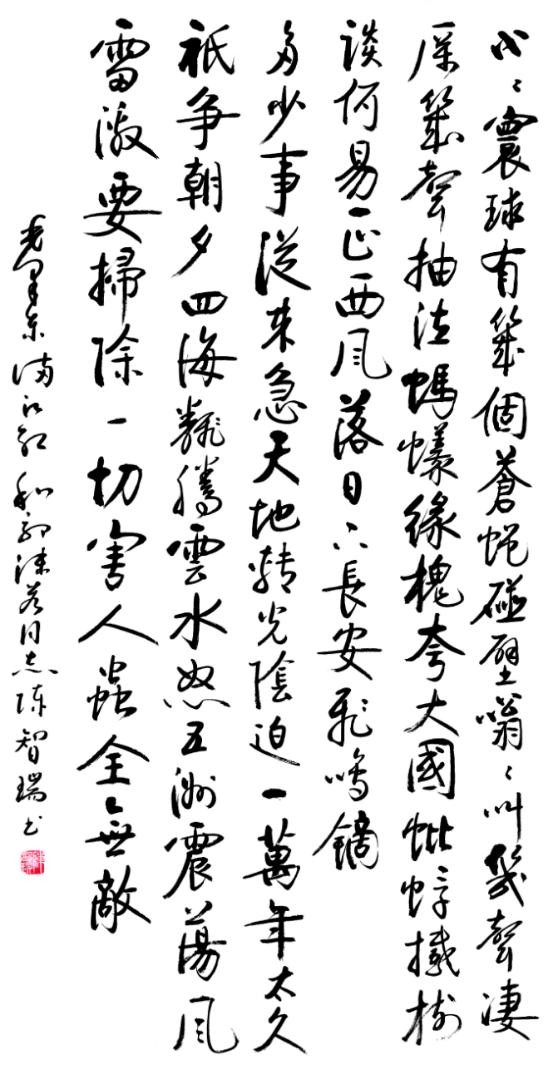 小〻寰球有幾個蒼蝇碰壁嗡〻叫幾聲凄
厲幾聲抽泣螞蟻緣槐夸大國蚍蜉撼樹
談何易正西風落日下長安飛鳴鏑
多少事從來急天地轉光陰迫一萬年太久
祇争朝夕四海飜騰雲水怒五洲震蕩風
雷激要掃除一切害人蟲全無敵
毛澤东满江红和郭沫若同志陈智瑞书